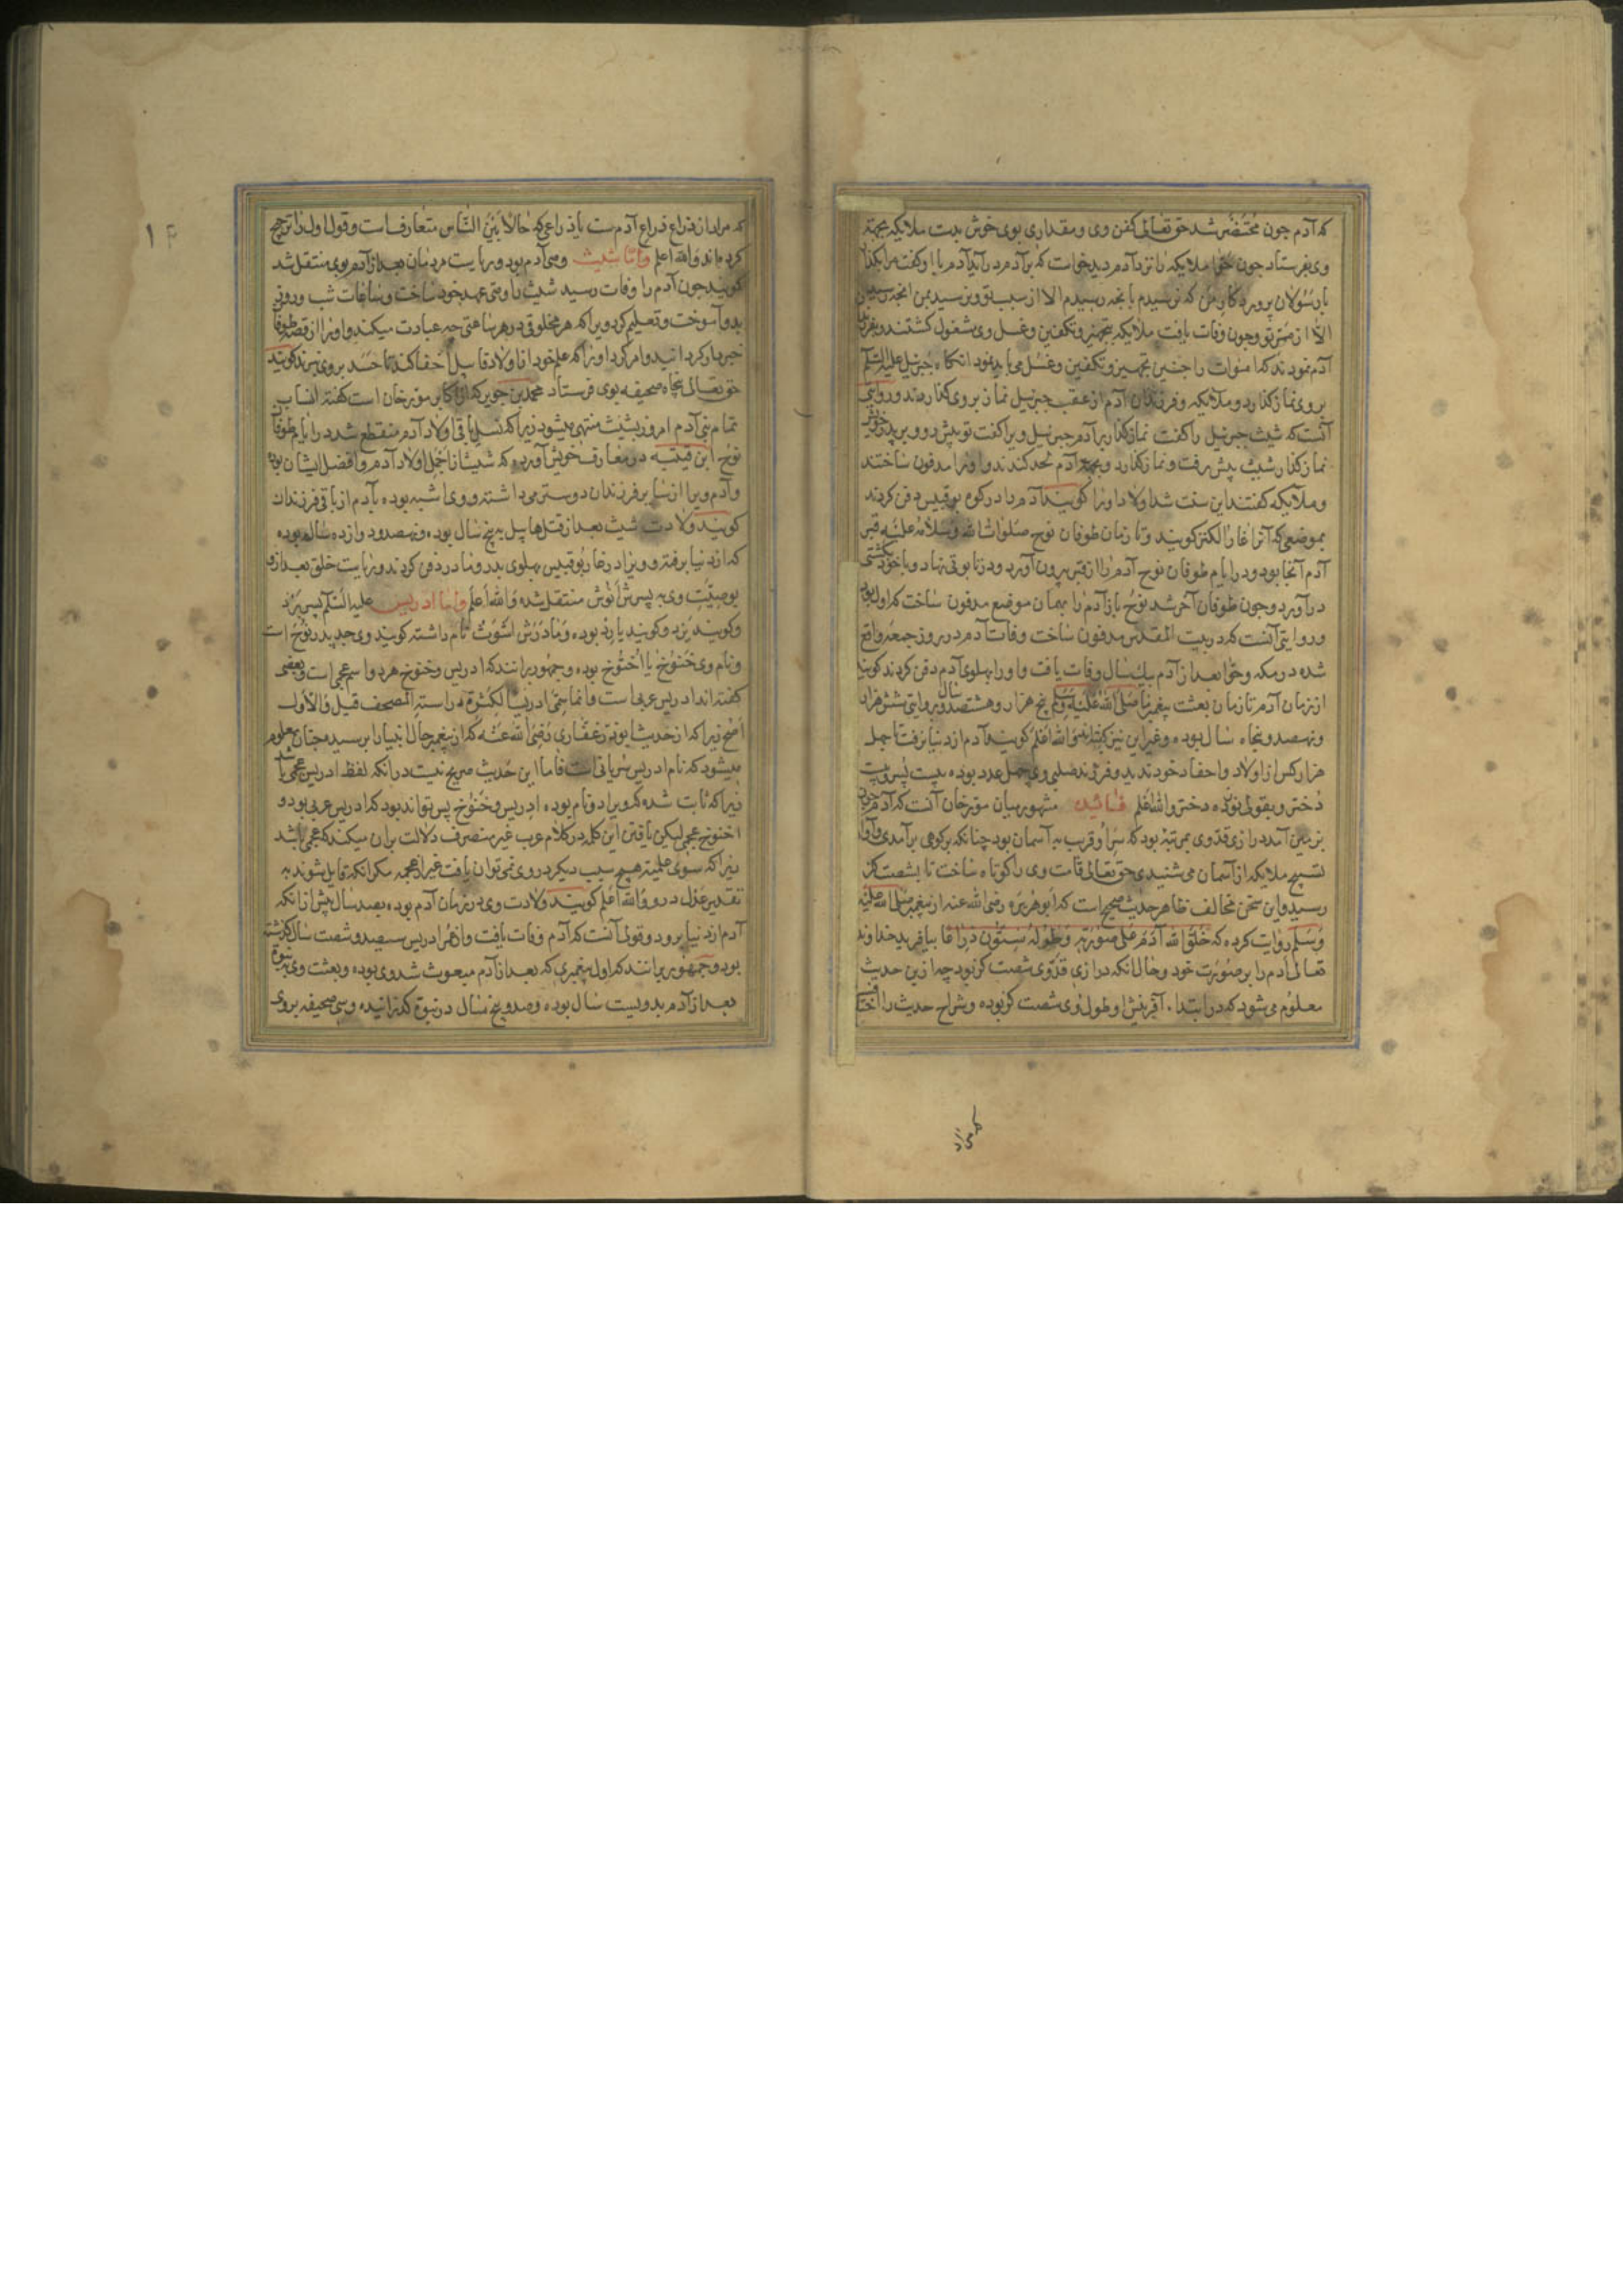 که آدم چون محتضر شد حق تعالی کفن وی و مقداری بوی خوش بدست ملایکه بجهته
وی بفرستاد چون حوا ملایکه را نزد آدم دید خواست که بر آدم در آید آدم با او کفت مرا بکذار
با رسولان پروردکار من که نرسیدم بانچه رسیدم الا از سبب تو و نرسید بمن انچه رسید
الا از ممر تو و چون وفات یافت ملایکه بتجهیز و تکفین و غسل وی مشغول کشتند و بفرزندان
آدم نمودند که اموات را چنین تجهیز و تکفین و غسل می باید نمود انکاه جبرئیل علیه السلم
بر وی نماز کذارد و ملایکه و فرزندان آدم از عقب جبرئیل نماز بر وی کذاردند و روایتی
آنست که شیث جبرئیل را کفت نماز کذار بر آدم جبرئیل ویرا کفت تو پیش رو و بر پدر خویش
نماز کذار شیث پیش رفت و نماز کذارد و بجهة آدم لحد کندند و او را مدفون ساختند
و ملایکه کفتند این سنت شد اولاد او را کویند آدم را در کوه بوقبیس دفن کردند
بموضعی که آنرا غار الکنز کویند و تا زمان طوفان نوح صلوات الله و سلامه علیه قبر
آدم آنجا بود و در ایام طوفان نوح آدم را از قبر بیرون آورد و در تابوتی نهاد و با خود بکشتی
در آورد و چون طوفان آخر شد نوح باز آدم را بهمان موضع مدفون ساخت که اول بود
و روایتی آنست که در بیت المقدس مدفون ساخت وفات آدم در روز جمعه واقع
شده در مکه و حوا بعد از آدم بیک سال وفات یافت و او را پهلوی آدم دفن کردند کویند
از زمان آدم تا زمان بعثت پیغمبر ما صلی الله علیه و سلم پنج هزار و هشتصد سال و بروایتی شش هزار
و نهصد و پنجاه سال بوده و غیر این نیز کفته اند و الله اعلم کویند آدم از دنیا نرفت تا چهل
هزار کس از اولاد و احفاد خود ندید و فرزند صلبی وی چهل عدد بوده بیست پسر و بیست
دختر و بقولی نوزده دختر و الله اعلم فائده مشهور میان مورخان آنست که آدم چون
بزمین آمد درازی قد وی بمرتبه بود که سر او قریب به آسمان بود چنانکه بر کوهی بر آمدی و آواز
تسبیح ملایکه از آسمان می شنیدی حق تعالی قامت وی را کوتاه ساخت تا بشصت کز
رسید و این سخن مخالف ظاهر حدیث صحیح است که ابو هریره رضی الله عنه از پیغمبر صلی الله علیه
و سلم روایت کرده که خلق الله آدم علی صورته و طوله ستون ذراعا بیافرید خداوند
تعالی آدم را بر صورت خود و حال انکه درازی قد وی شصت کز بود چه ازین حدیث
معلوم می شود که در ابتداء آفرینش او طول وی شصت کز بوده و شراح حدیث را اختلاف
که مراد از ذراع ذراع آدم ست یا ذراعی که حالا بین الناس متعارف است و قول اول را ترجیح
کرده اند و الله اعلم و اما شیث وصی آدم بود و ریاست مردمان بعد از آدم بوی منتقل شد
کویند چون آدم را وفات رسید شیث را وصی عهد خود ساخت و ساعات شب و روز
بدو آموخت و تعلیم کرد ویرا که هر مخلوقی در هر ساعتی چه عبادت میکند و او را از قصه طوفان
خبردار کردانید و امر کرد او را که علم خود از اولاد قابیل اخفا کند تا حسد بر وی نبرند کویند
حق تعالی پنجاه صحیفه بوی فرستاد محمد بن جریر که از اکابر مورخان است کفته انساب
تمام بنی آدم امروز بشیث منتهی میشود زیرا که نسل باقی اولاد آدم منقطع شد در ایام طوفان
نوح ابن قتیبه در معارف خویش آورده که شیث از اجمل اولاد آدم و افضل ایشان بود
و آدم ویرا از سایر فرزندان دوستر می داشته و وی اشبه بوده بآدم از باقی فرزندان
کویند ولادت شیث بعد از قتل هابیل به پنج سال بوده و نهصد و دوازده ساله بوده
که از دنیا برفته و ویرا در غار بوقبیس پهلوی پدر و مادر دفن کردند و ریاست خلق بعد از وی
بوصیت وی به پسرش انوش منتقل شده و الله اعلم و اما ادریس علیه السلم پسر یرد
و کویند یزد و کویند یارد بوده و مادرش اشوث نام داشته کویند وی جد پدر نوح است
و نام وی خنوخ یا اخنوخ بوده و جمهور برانند که ادریس و خنوخ هر دو اسم عجمی است و بعضی
کفته اند ادریس عربی است و انما سمی ادریسا لکثرة دراسته المصحف قیل و الاول
اصح زیرا که از حدیث ابوذر غفاری رضی الله عنه که از پیغمبر حال انبیا را پرسید چنان معلوم
میشود که نام ادریس سریانی است فاما این حدیث صریح نیست درانکه لفظ ادریس عجمی باشد
زیرا که ثابت شده که ویرا دو نام بوده ادریس و خنوخ پس تواند بود که ادریس عربی بود و
اخنوخ عجمی لیکن یافتن این کلمه در کلام عرب غیر منصرف دلالت بران میکند که عجمی باشد
زیرا که سوی علمیة هیچ سبب دیکر در وی نمی توان یافت غیر از عجمه مکر انکه قایل شوند به
تقدیر عدل درو و الله اعلم کویند ولادت وی در زمان آدم بوده بصد سال پیش ازانکه
آدم از دنیا برود و قولی آنست که آدم وفات یافت و از عمر ادریس سیصد و شصت سال کذشته
بود و جمهور برانند که اول پیغمبری که بعد از آدم مبعوث شد وی بوده و بعثت وی بنبوة
بعد از آدم بدویست سال بوده و صد و پنج سال در نبوة کذرانیده و سی صحیفه بر وی